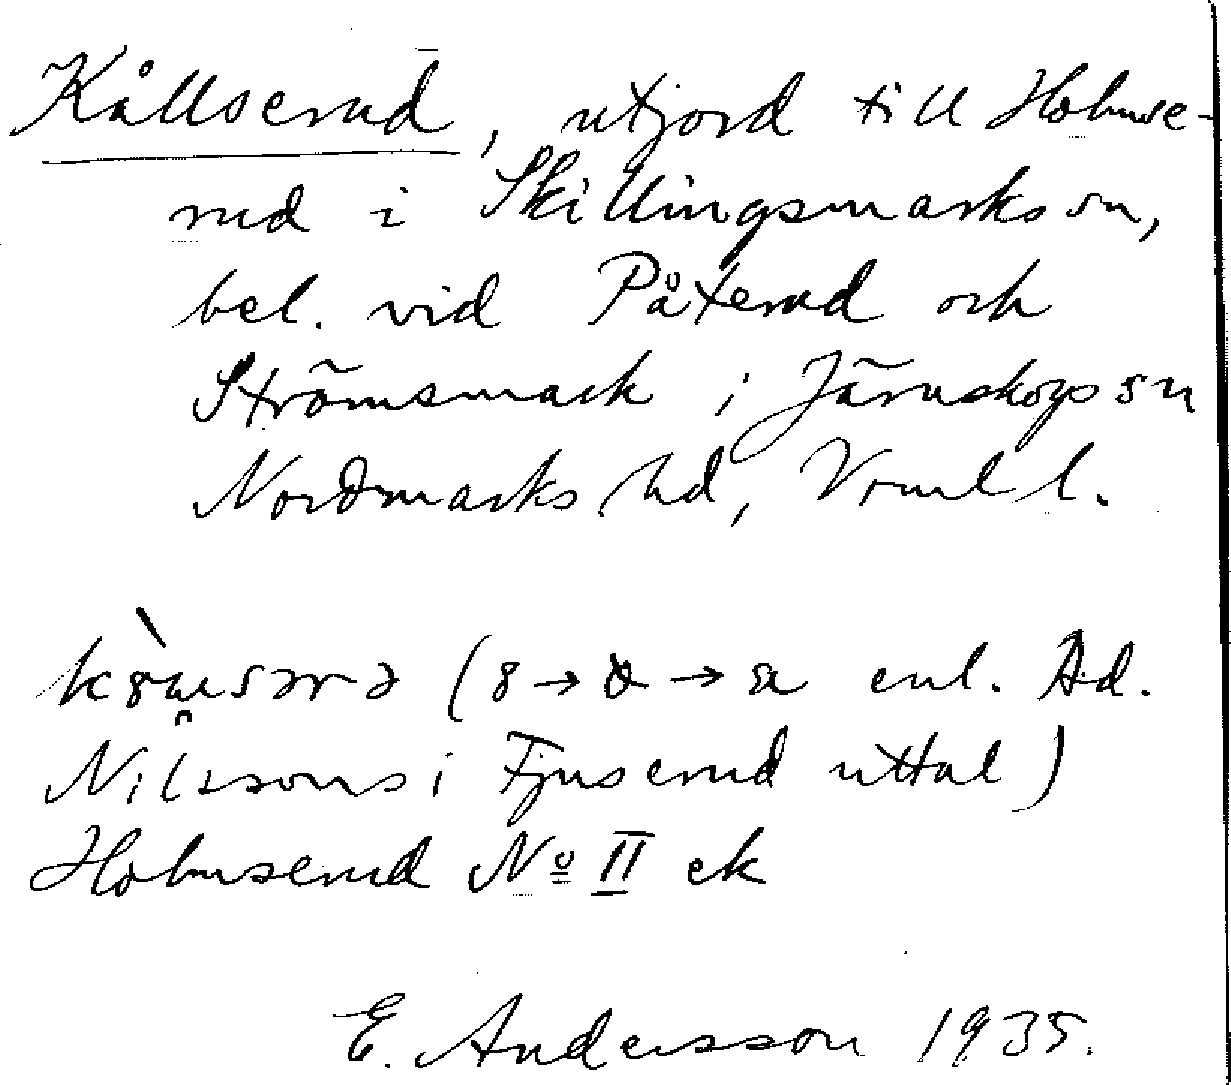 Kållserud, utjord till Holmse-
rud i Skillingsmarks sn,
bel. vid Påterud och
Strömsmark i Järnskogs sn
Nordmarks hd, Vrml l.
(8 → → enl. Ad.
Nilssons i Fjuserud uttal)
Holmserud No II ek
E. Andersson 1935.